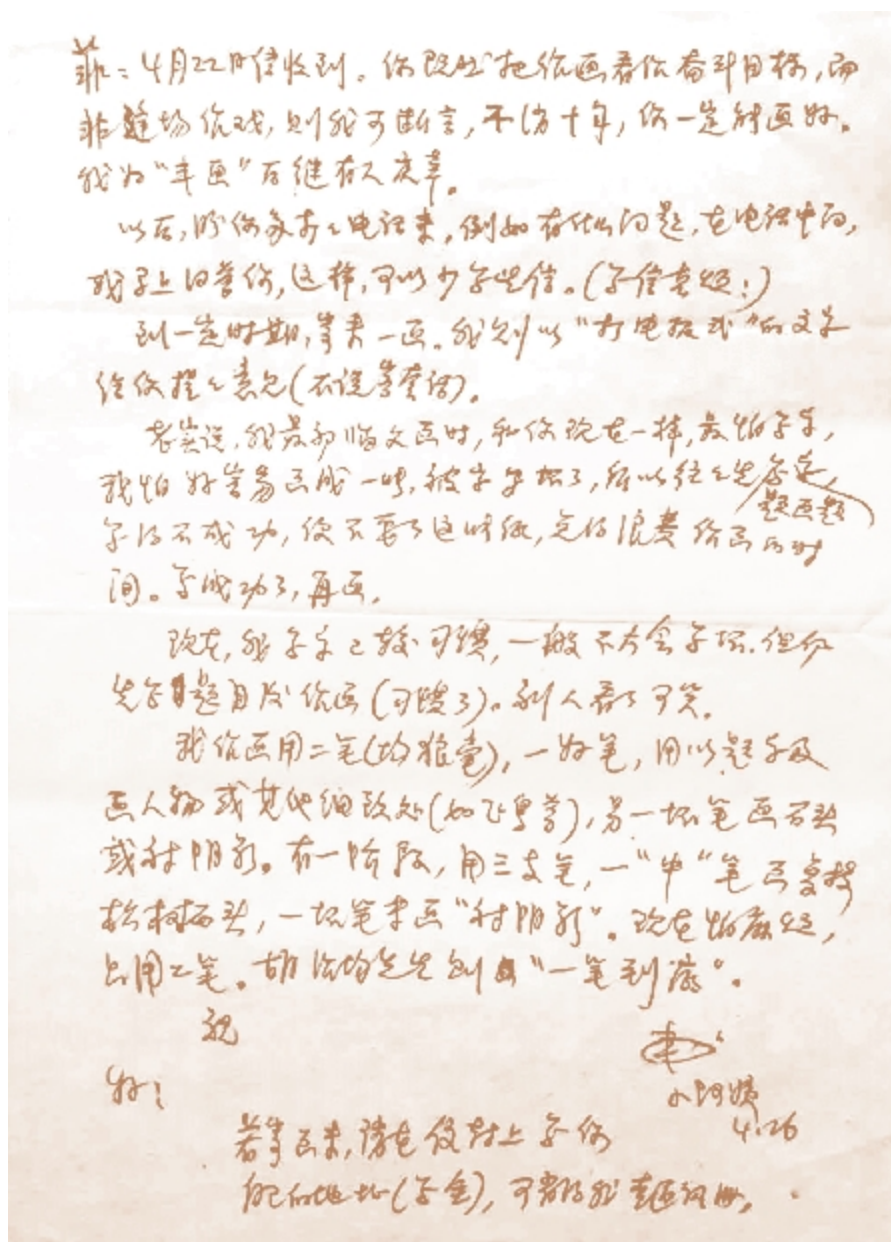 菲：4月22日信收到。你既然把作画看作奋斗目标，而
非逢场作戏，则我可断言，不消十年，你一定能画好。
我为“丰画”后继有人庆幸。
以后，盼你多打打电话来，例如有什么问题，在电话中问，
我马上回答你，这样，可以少写些信。（写信麻烦！）
到一定时期，寄来一画。我则以“打电报式”的文字
给你提提意见（不说客套话）。
老实说，我最初临父画时，和你现在一样，最怕写字，
我怕好容易画成一吋，被字写坏了，所以往往先写字，
题画题
字得不成功，便不要了这吋纸，免得浪费作画的时
间。写成功了，再画。
现在，我写字已较习惯，一般不大会写坏，但仍
先写题目后作画（习惯了）。别人看了可笑。
我作画用二笔（均狼毫），一好笔，用以题字及
画人物或其他细致处（如飞鸟等），另一坏笔画石头
或衬阴影。有一阶段，用三支笔，一“中”笔画
松树石头，一坏笔来画“衬阴影”。现在怕麻烦，
只用二笔。胡治均先生则“一笔到底”。
祝
好！
小阿姨
4.26
若寄画来，请在信封上写你
的地址（写全），可省得我查通讯册。